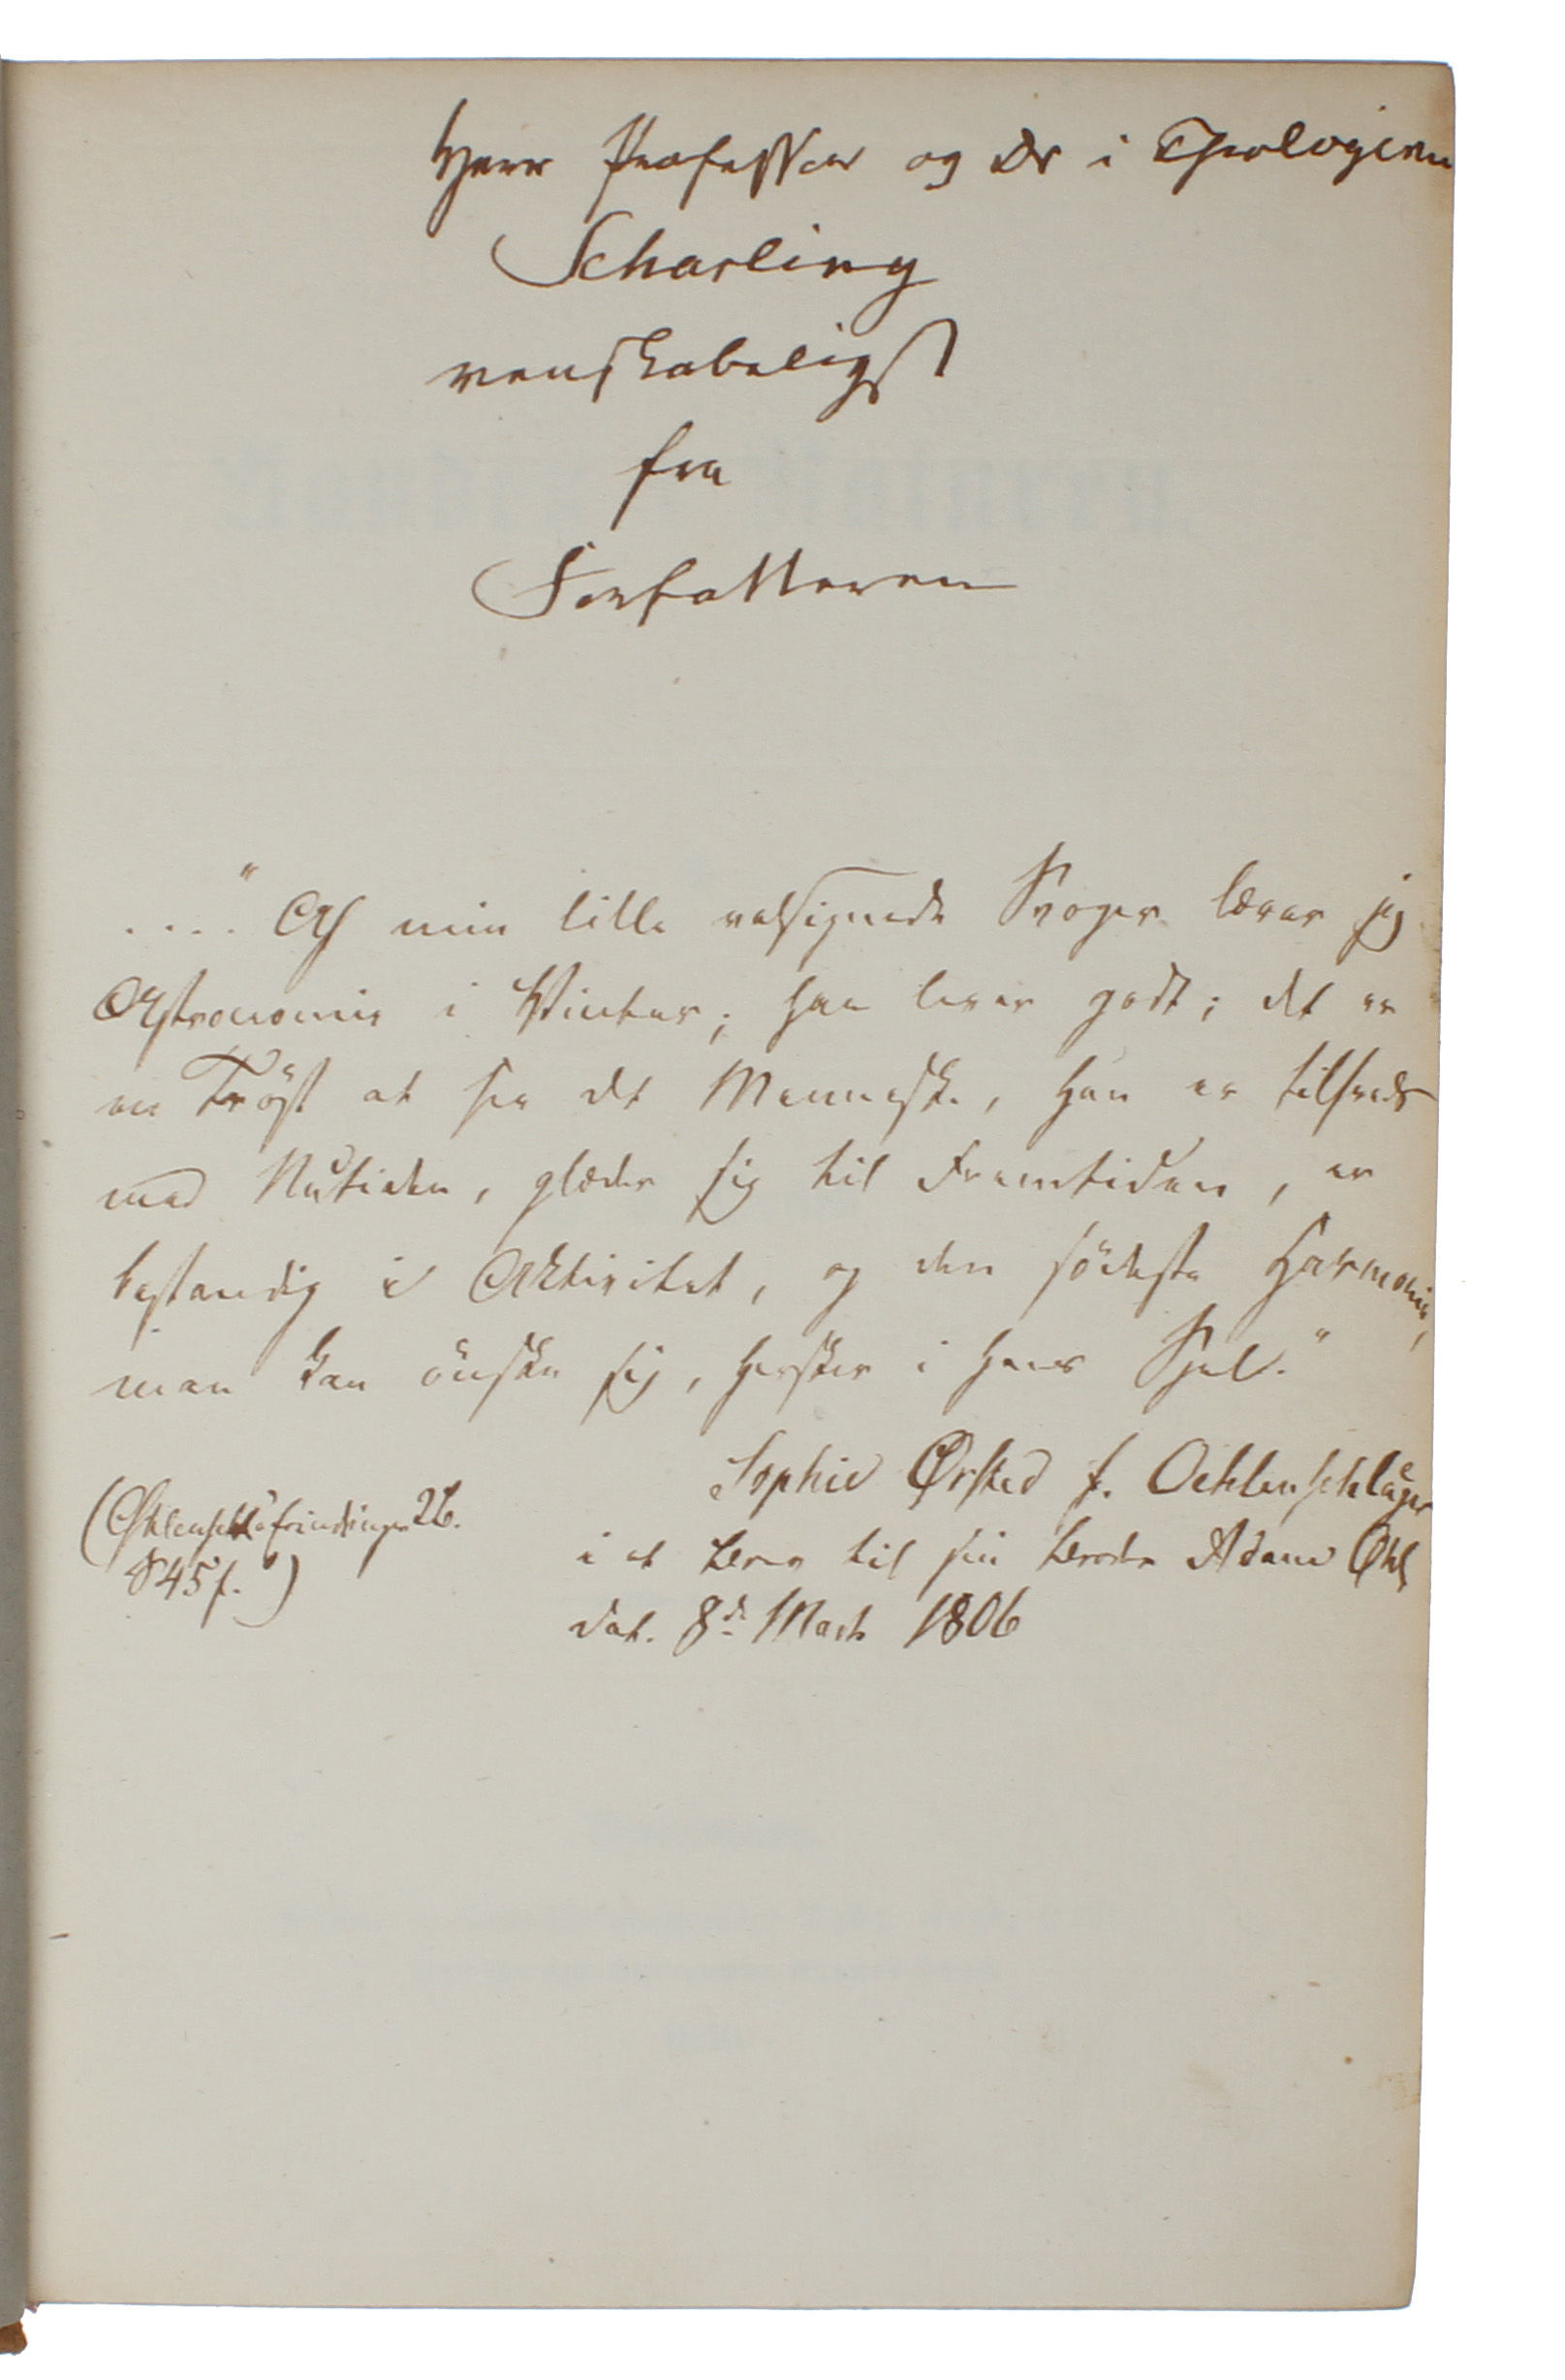 Herr Professor og Dr i Theologien
Scharling
venskabeligst
fra
Forfatteren
...." Af min lille velsignede Svoger lærer jeg
Astronomie i Vinter; han lever godt; det er
en Tröst at see det Menneske, han er tilfreds
med Nutiden, glæder sig til Fremtiden, er
bestandig i Aktivitet, og den södeste Harmonie,
man kan önske sig, hersker i hans Sjel."
Sophie Ørsted f. Oehlenschläger
i et Brev til sin Broder Adam Øhl
dat. 8d. Marts 1806
(Øhlenschl. Erindringer 2 B.
S 45 f.)